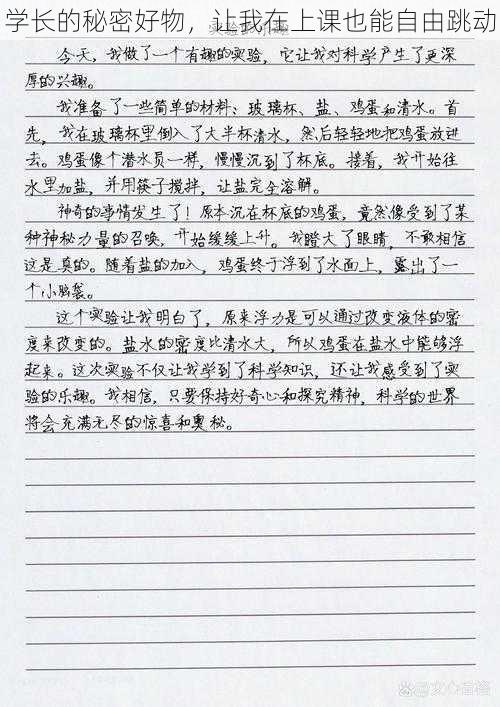 学长的秘密好物，让我在上课也能自由跳动
今天，我做了一个有趣的实验，它让我对科学产生了更深
厚的兴趣。
我准备了一些简单的材料：玻璃杯、盐、鸡蛋和清水。首
先，我在玻璃杯里倒入了大半杯清水，然后轻轻地把鸡蛋放进
去。鸡蛋像个潜水员一样，慢慢沉到了杯底。接着，我开始往
水里加盐，并用筷子搅拌，让盐完全溶解。
神奇的事情发生了！原本沉在杯底的鸡蛋，竟然像受到了某
种神秘力量的召唤，开始缓缓上升。我瞪大了眼睛，不敢相信
这是真的。随着盐的加入，鸡蛋终于浮到了水面上，露出了一
个小脑袋。
这个实验让我明白了，原来浮力是可以通过改变液体的密
度来改变的。盐水的密度比清水大，所以鸡蛋在盐水中能够浮
起来。这次实验不仅让我学到了科学知识，还让我感受到了实
验的乐趣。我相信，只要保持好奇心和探究精神，科学的世界
将会充满无尽的惊喜和奥秘。